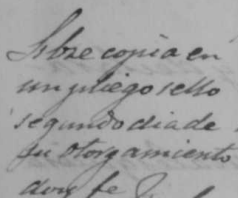 Libre copia en
un pliego sello
segundo dia de
su otorgamiento
doy fe